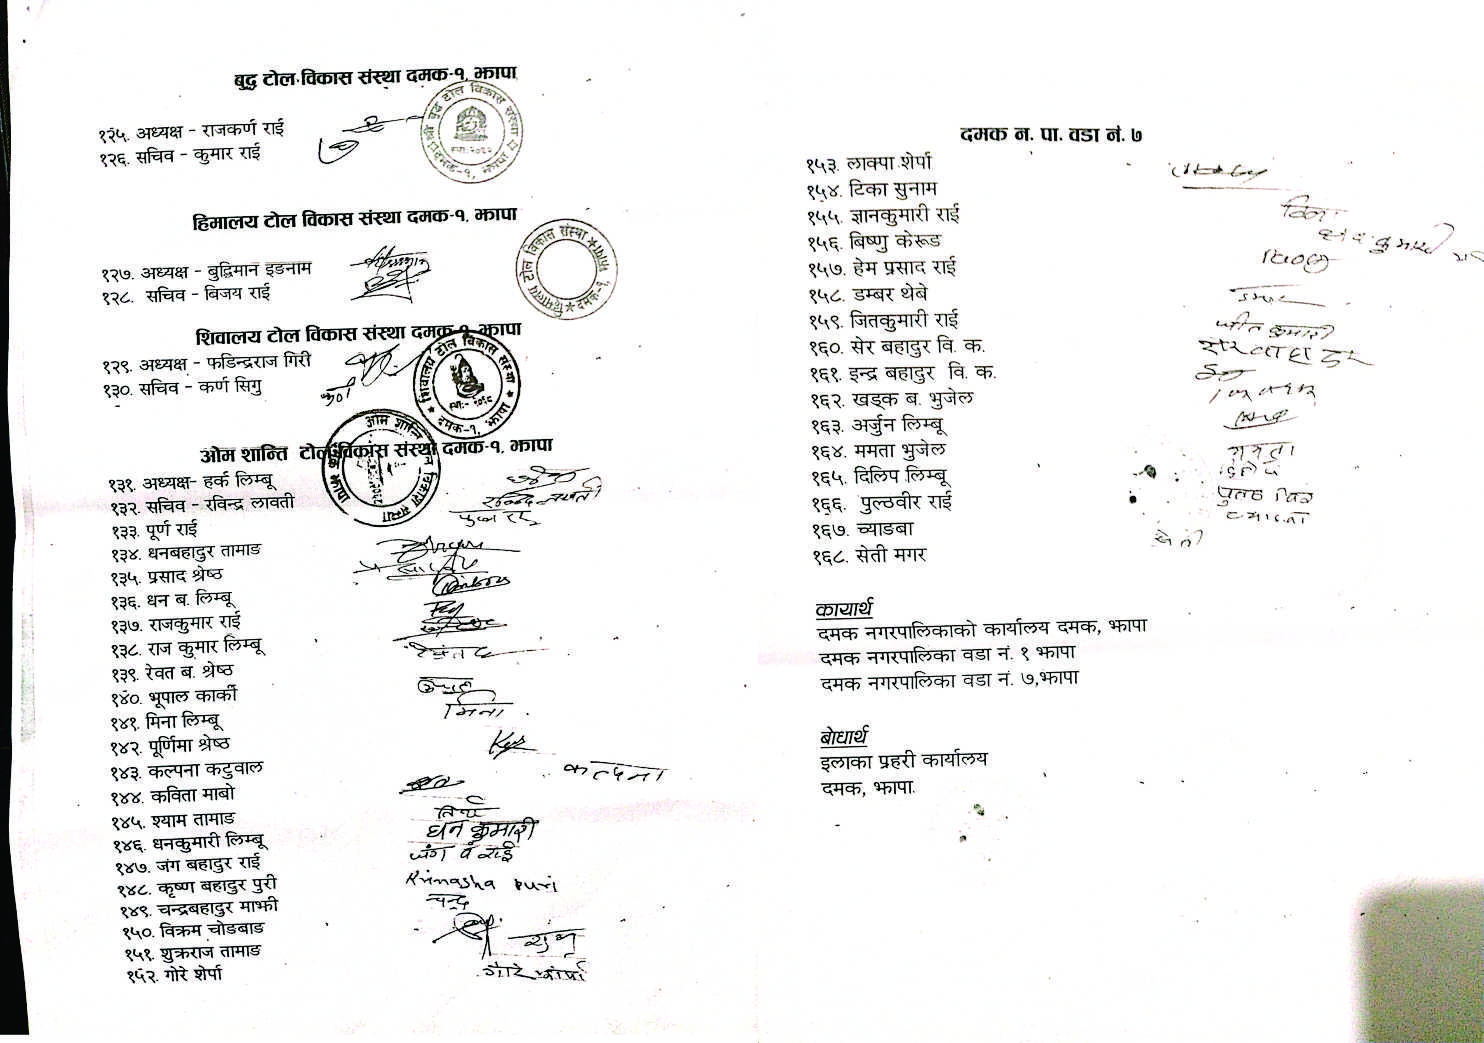 बुद्ध टोल विकास संस्था दमक-१, झापा
१२५. अध्यक्ष - राजकर्ण राई
१२६. सचिव - कुमार राई
हिमालय टोल विकास संस्था दमक-१, झापा
१२७. अध्यक्ष - बुद्धिमान इङनाम
१२८. सचिव - विजय राई
शिवालय टोल विकास संस्था दमक-१ झापा
१२९. अध्यक्ष - फडिन्द्रराज गिरी
१३०. सचिव - कर्ण सिगु
ओम शान्ति टोल विकास संस्था दमक-१, झापा
१३१. अध्यक्ष- हर्क लिम्बू
१३२. सचिव - रविन्द्र लावती
१३३. पूर्ण राई
१३४. धनबहादुर तामाङ
१३५. प्रसाद श्रेष्ठ
१३६. धन ब. लिम्बू
१३७. राजकुमार राई
१३८. राज कुमार लिम्बू
१३९. रेवत ब. श्रेष्ठ
१४०. भूपाल कार्की
१४१. मिना लिम्बू
मिना
१४२. पूर्णिमा श्रेष्ठ
१४३. कल्पना कटुवाल
कल्पना
१४४. कविता माबो
१४५. श्याम तामाङ
१४६. धनकुमारी लिम्बू
धन कुमारी
१४७. जंग बहादुर राई
जंग ब राई
१४८. कृष्ण बहादुर पुरी
Krinasha puri
१४९. चन्द्रबहादुर माझी
चन्द्र
१५०. विक्रम चोङबाङ
१५१. शुक्रराज तामाङ
१५२. गोरे शेर्पा
गोरे शेर्पा
दमक न. पा. वडा नं. ७
१५३. लाक्पा शेर्पा
१५४. टिका सुनाम
१५५. ज्ञानकुमारी राई
१५६. बिष्णु केरूङ
१५७. हेम प्रसाद राई
१५८. डम्बर थेबे
१५९. जितकुमारी राई
जीत कुमारी
१६०. सेर बहादुर वि. क.
सेर बहादुर
१६१. इन्द्र बहादुर वि. क.
१६२. खड्क ब. भुजेल
१६३. अर्जुन लिम्बू
१६४. ममता भुजेल
ममता
१६५. दिलिप लिम्बू
१६६. पुल्ठवीर राई
१६७. च्याङबा
१६८. सेती मगर
सेती
कायार्थ
दमक नगरपालिकाको कार्यालय दमक, झापा
दमक नगरपालिका वडा नं. १ झापा
दमक नगरपालिका वडा नं. ७,झापा
बोधार्थ
इलाका प्रहरी कार्यालय
दमक, झापा